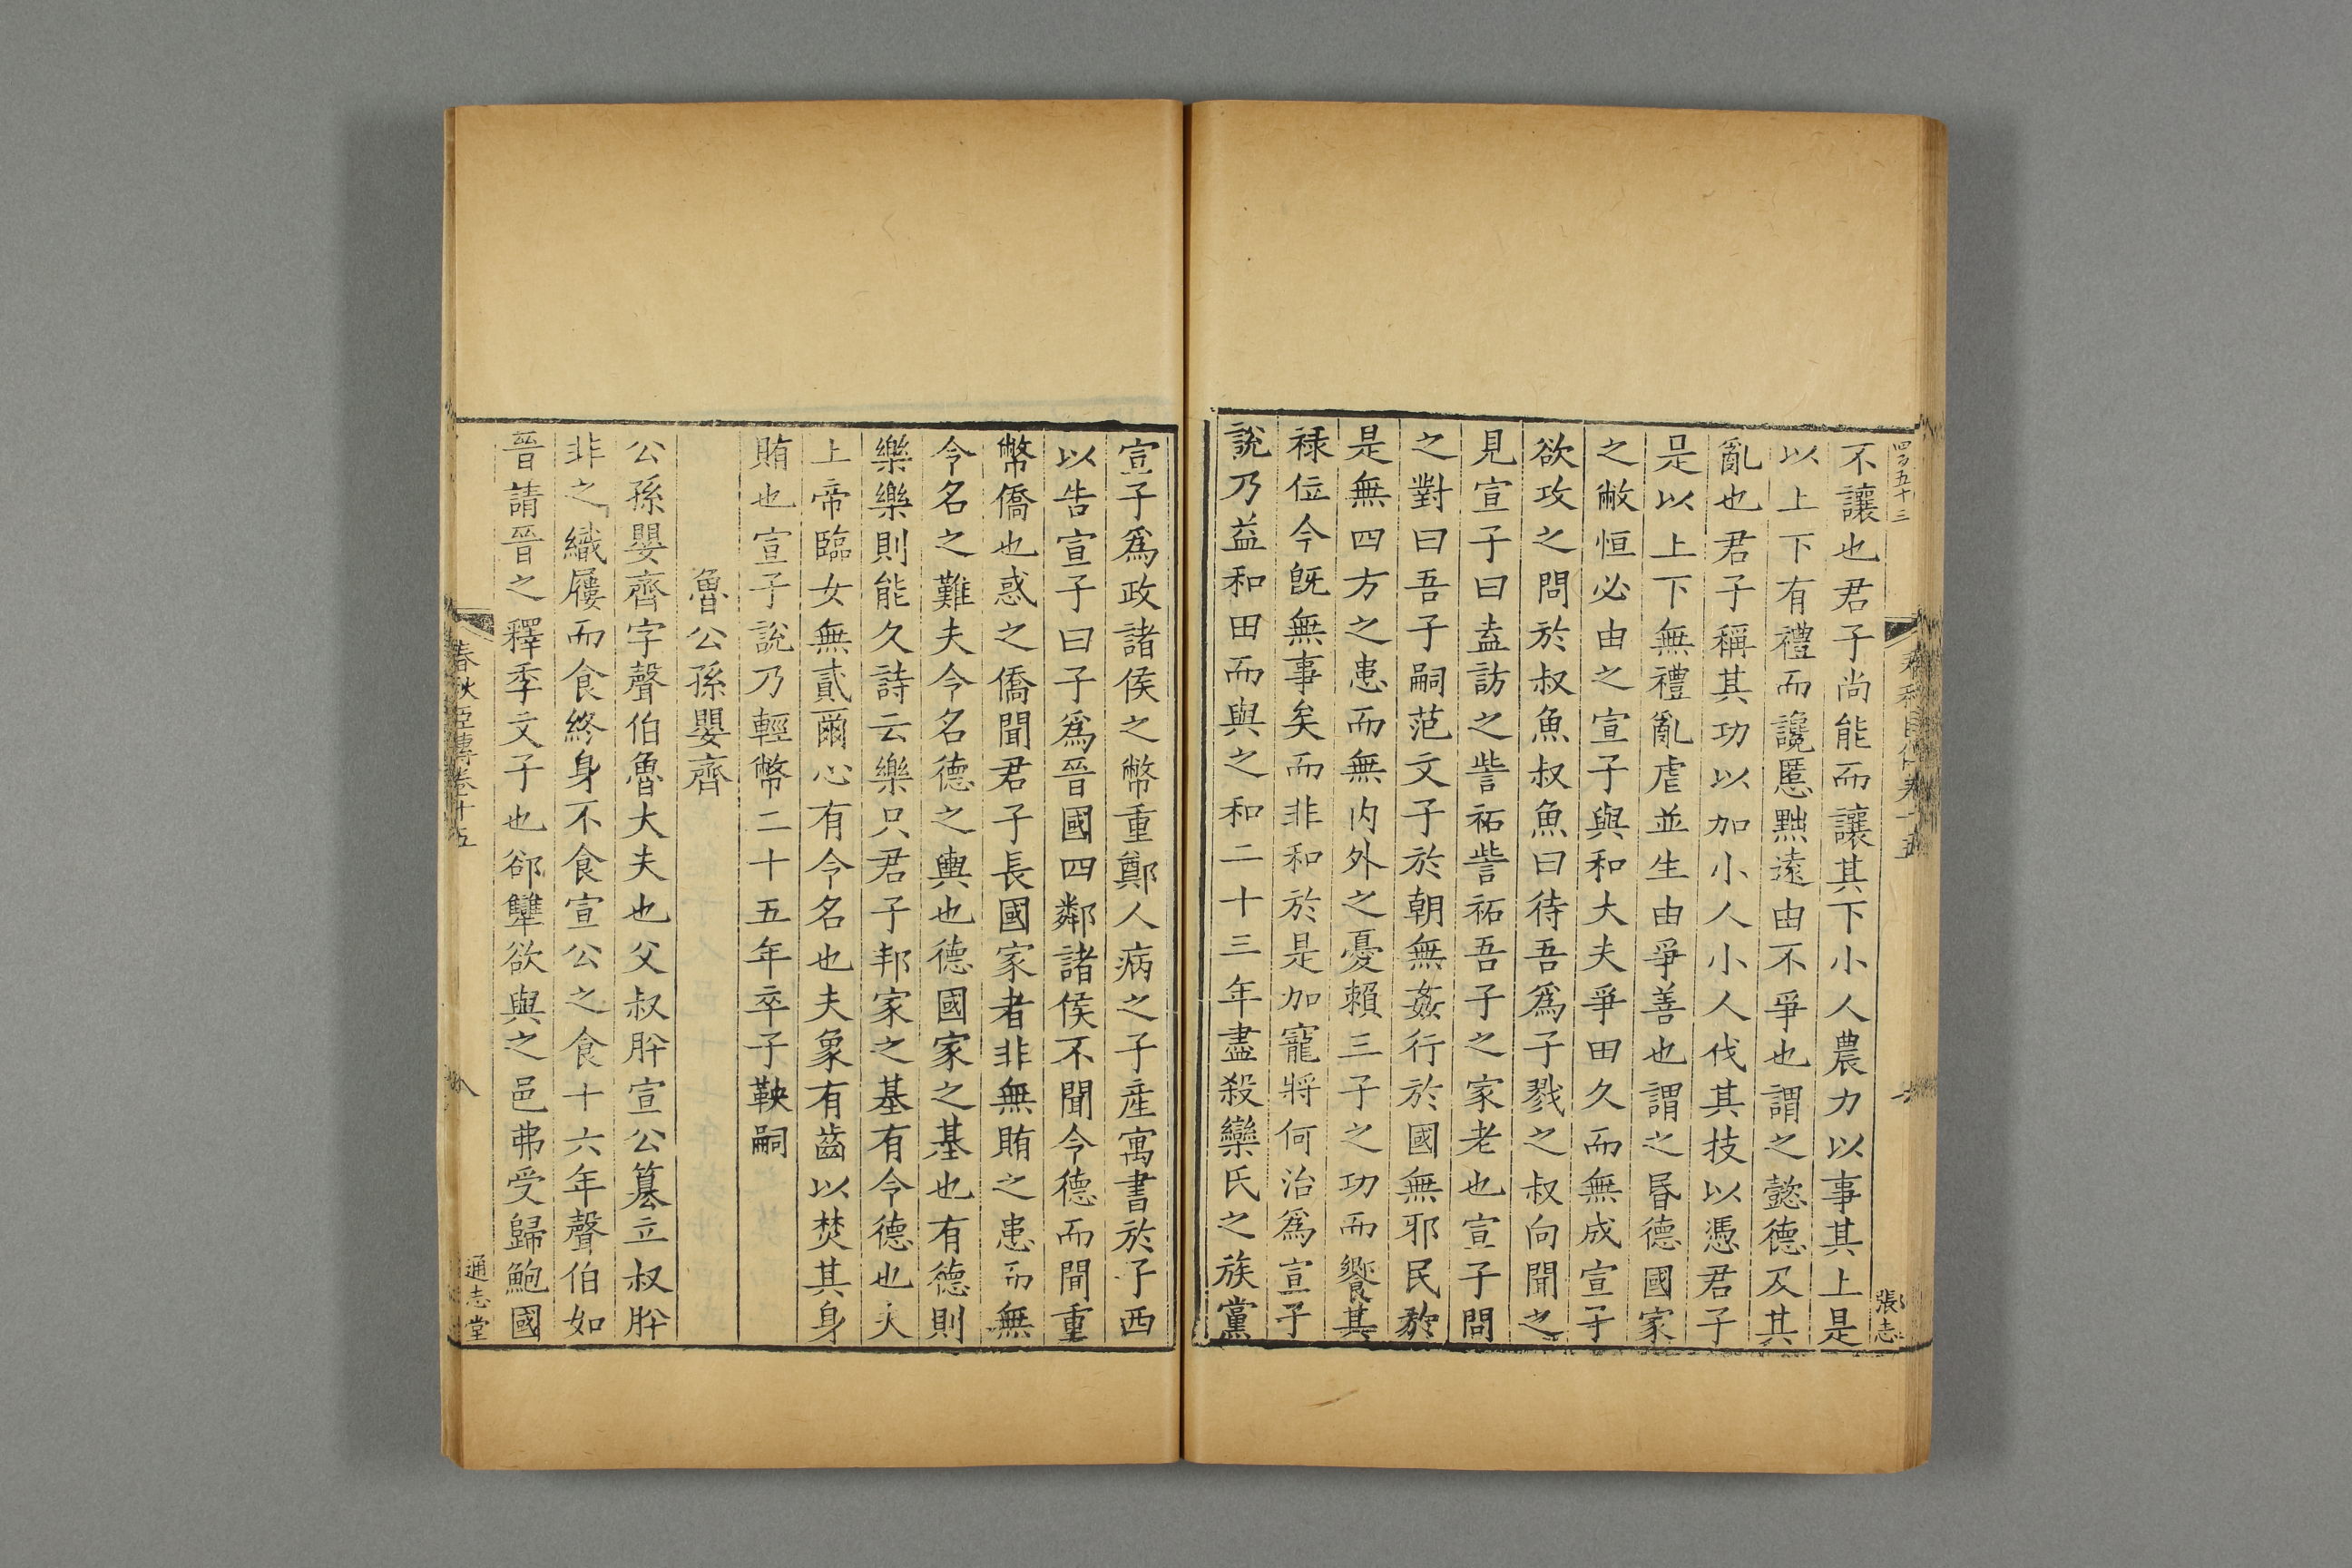 四百五十三
不讓也君子尚能而讓其下小人農力以事其上是
以上下有禮而讒慝黜遠由不爭也謂之懿德及其
亂也君子稱其功以加小人小人伐其技以憑君子
是以上下無禮亂虐並生由爭善也謂之昬德國家
之敝恒必由之宣子與和大夫爭田久而無成宣子
欲攻之問於叔魚叔魚曰待吾爲子戮之叔向聞之
見宣子曰盍訪之訾祏訾祏吾子之家老也宣子問
之對曰吾子嗣范文子於朝無姦行於國無邪民於
是無四方之患而無內外之憂賴三子之功而饗其
祿位今旣無事矣而非和於是加寵將何治爲宣子
說乃益和田而與之和二十三年盡殺欒氏之族黨
張志
宣子爲政諸侯之幣重鄭人病之子產寓書於子西
以告宣子曰子爲晉國四鄰諸侯不聞令德而聞重
幣僑也惑之僑聞君子長國家者非無賄之患而無
令名之難夫令名德之輿也德國家之基也有德則
樂樂則能久詩云樂只君子邦家之基有令德也夫
上帝臨女無貳爾心有令名也夫象有齒以焚其身
賄也宣子說乃輕幣二十五年卒子鞅嗣
魯公孫嬰齊
公孫嬰齊字聲伯魯大夫也父叔肸宣公簒立叔肸
非之織屨而食終身不食宣公之食十六年聲伯如
晉請晉之釋季文子也郤犨欲與之邑弗受歸鮑國
春秋臣傳卷十五
八
通志堂